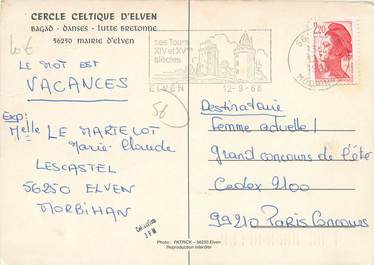 CERCLE CELTIQUE D'ELVEN
BAGAD - DANSES - LUTTE BRETONNE
56250 MAIRIE D'ELVEN
LE MOT EST
VACANCES
Exp:
Melle LE MARTELOT
Marie-Claude
LESCASTEL
56250 ELVEN
MORBIHAN
ses Tours
XIV et XVe
siècles
ELVEN
12-9-86
56
2,20
Destinataire
Femme actuelle!
grand concours de l'été
Cedex 2100
99210 Paris Concours
Collection
JFM
Photo : PATRICK - 56250 Elven
Reproduction interdite